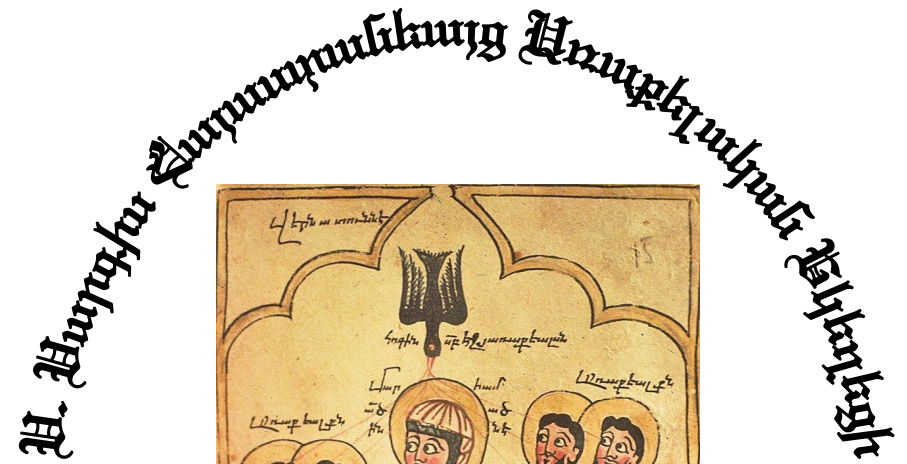 Ս. Սարգիս Հայաստանեայց Առաքելական Եկեղեցի
Վերնատունն է
հոգին սբ էջ յառաքեալսն
Առաքեալքն
Առաքեալքն